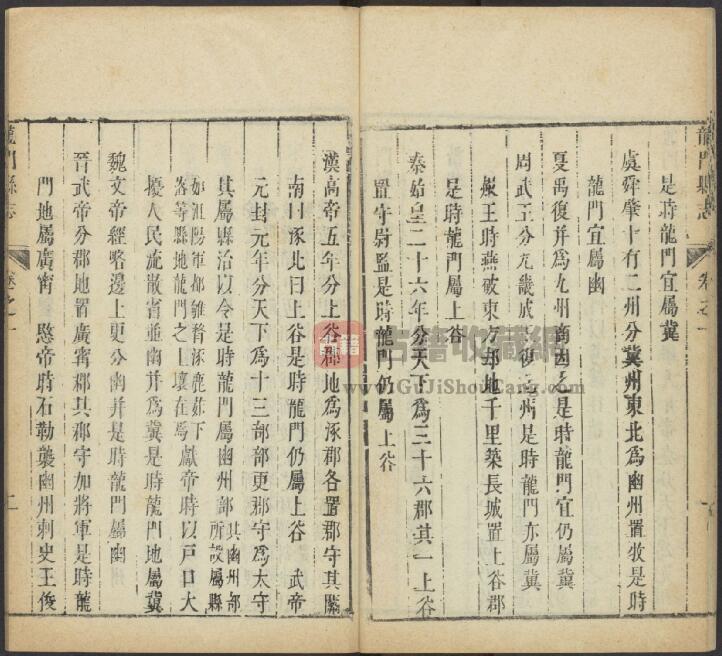 龍門縣志
卷之一
是時龍門宜屬冀
虞舜肇十有二州分冀州東北為幽州置牧是時
龍門宜屬幽
夏禹復并為九州商因之是時龍門宜仍屬冀
周武王分九畿成王復之州是時龍門亦屬冀
赧王時燕破東方却地千里築長城置上谷郡
是時龍門屬上谷
秦始皇二十六年分天下為三十六郡其一上谷
置守尉監是時龍門仍屬上谷
漢高帝五年分上谷郡地為涿郡各置郡守其關
南曰涿北曰上谷是時龍門仍屬上谷 武帝
元封元年分天下為十三部部更郡守為太守
其屬縣治以令是時龍門屬幽州部其幽州部所設屬縣
如沮陽軍都雊瞀涿鹿茹下
落等縣地龍門之土壤在焉 獻帝時以戶口大
擾人民流散省並幽并為冀是時龍門地屬冀
魏文帝經略邊上更分幽并是時龍門屬幽
晉武帝分郡地置廣甯郡其郡守加將軍是時龍
門地屬廣甯 愍帝時石勒襲幽州刺史王俊
龍門縣志
卷之一
二
古籍收藏網
www.GuJiShouCang.com